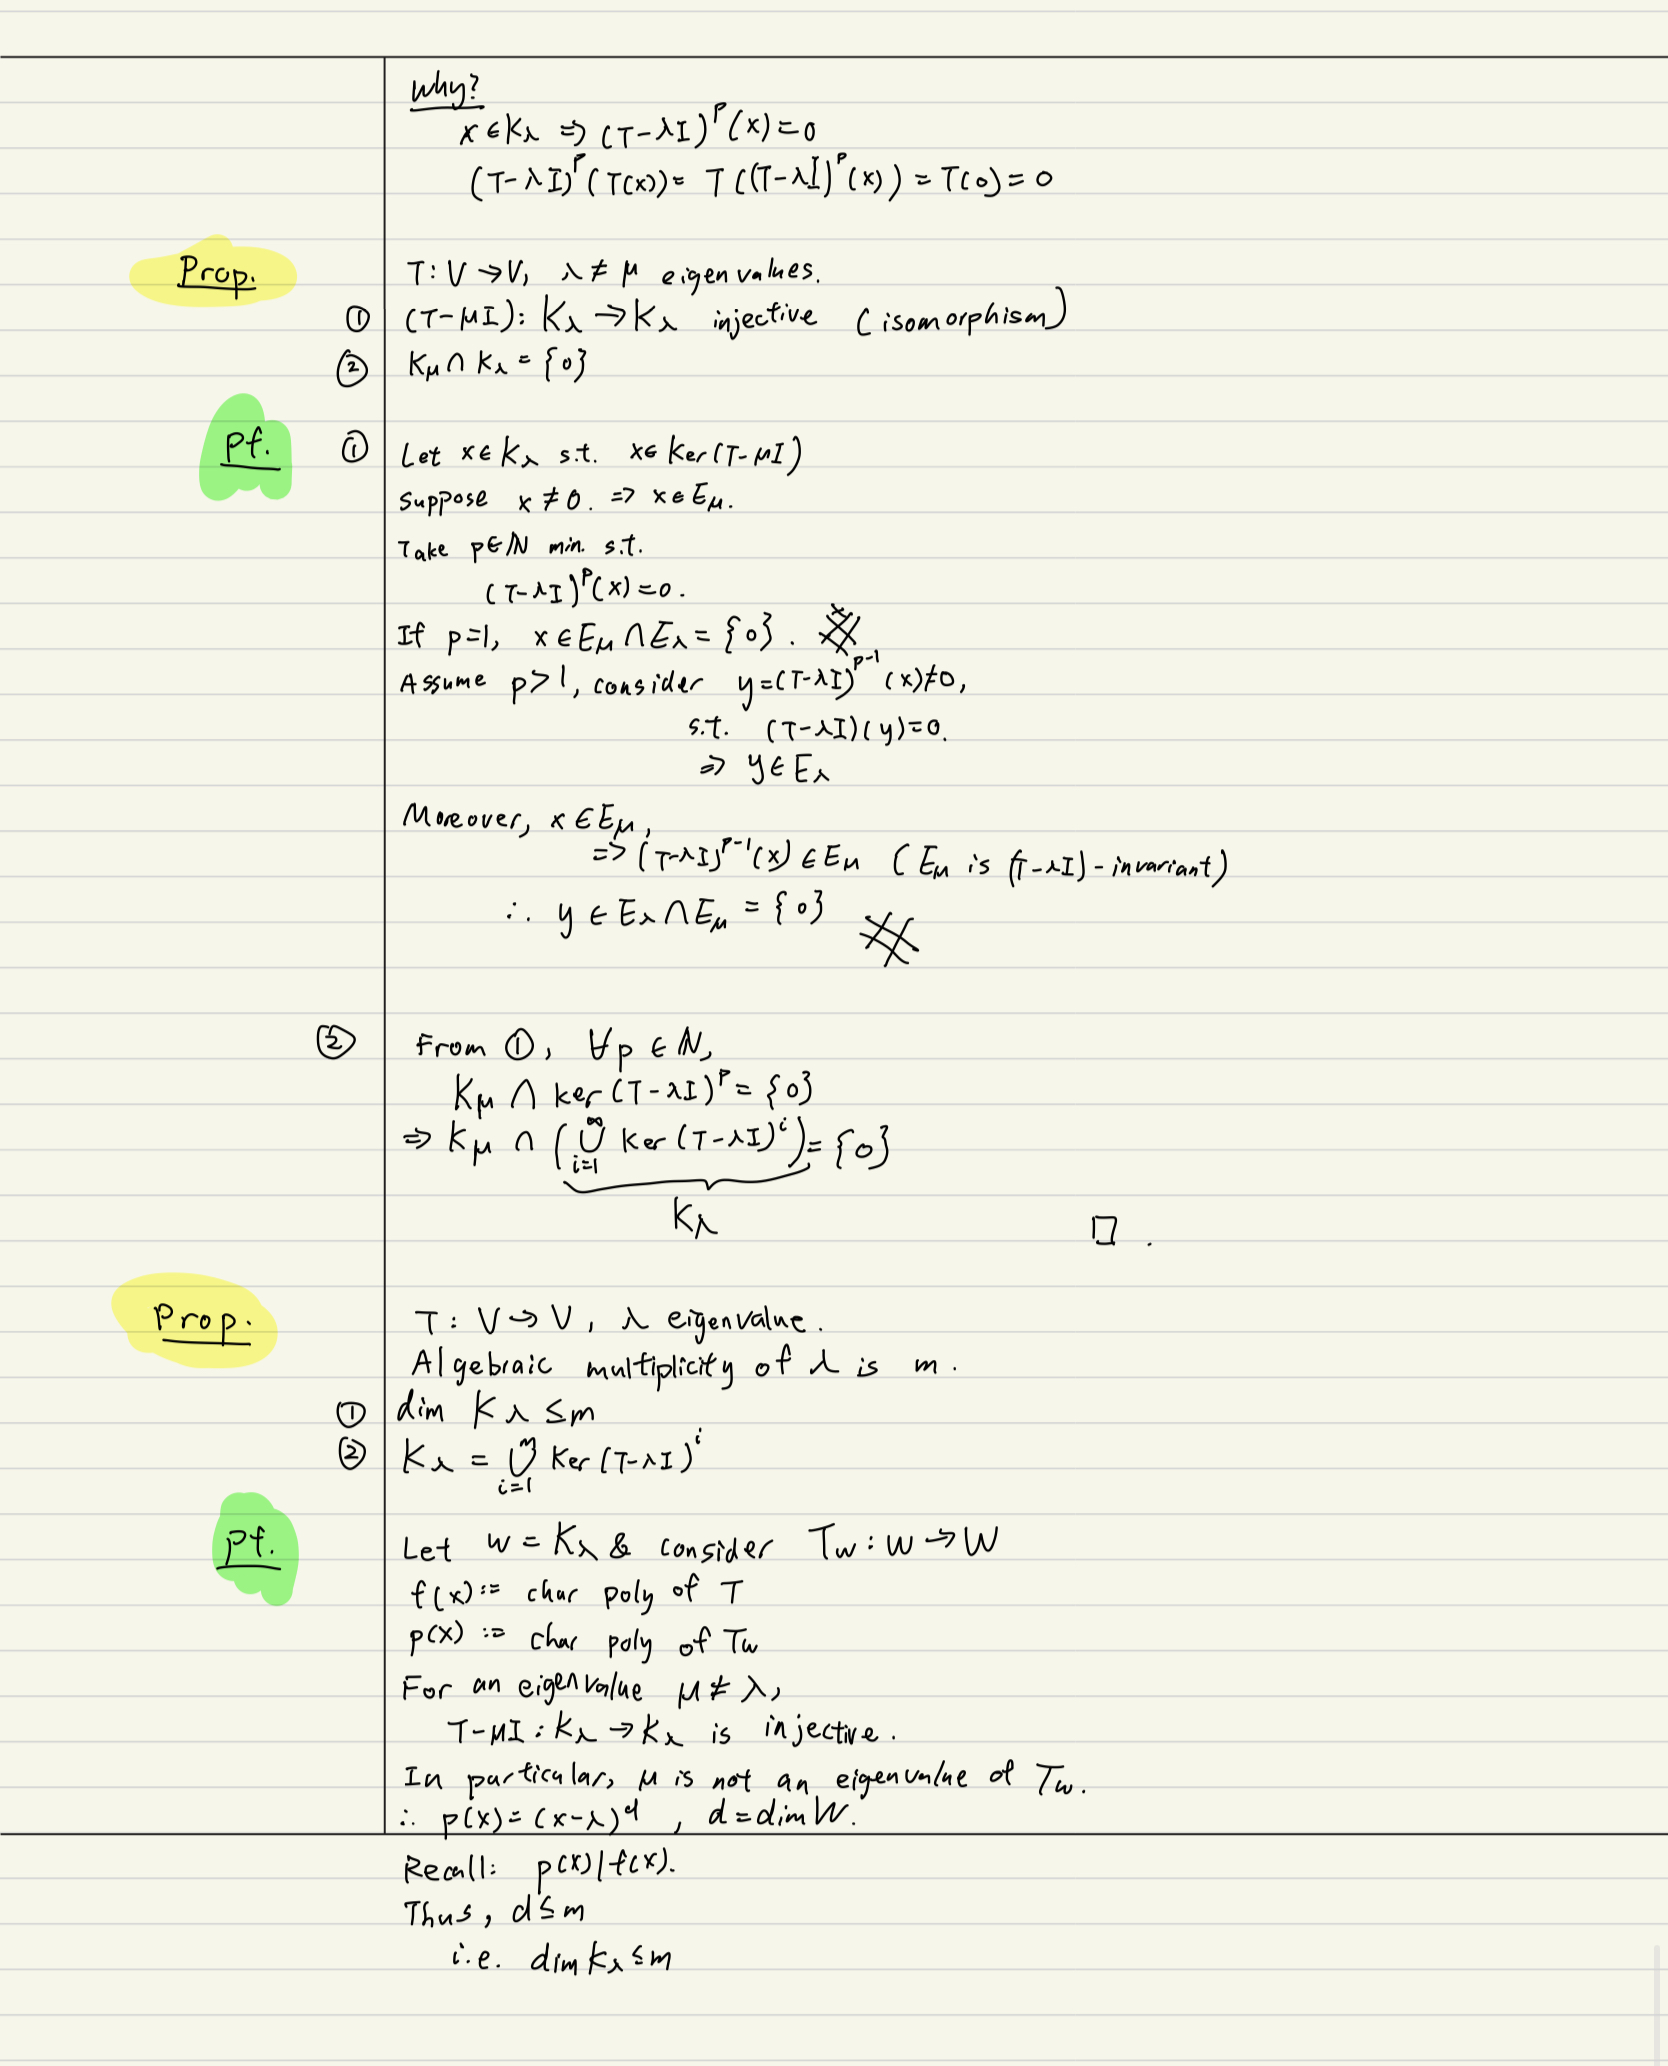 why?
x ∈ Kλ ⇒ (T-λI)^p (x) = 0
(T-λI)^p (T(x)) = T((T-λI)^p (x)) = T(0) = 0
Prop. T: V → V, λ ≠ μ eigenvalues.
① (T-μI): Kλ → Kλ injective (isomorphism)
② Kμ ∩ Kλ = {0}
Pf. ① Let x ∈ Kλ s.t. x ∈ Ker(T-μI)
Suppose x ≠ 0. ⇒ x ∈ Eμ.
Take p ∈ ℕ min. s.t.
(T-λI)^p (x) = 0.
If p=1, x ∈ Eμ ∩ Eλ = {0}. ※
Assume p > 1, consider y = (T-λI)^{p-1} (x) ≠ 0,
s.t. (T-λI)(y) = 0.
⇒ y ∈ Eλ
Moreover, x ∈ Eμ,
⇒ (T-λI)^{p-1} (x) ∈ Eμ (Eμ is (T-λI)-invariant)
∴ y ∈ Eλ ∩ Eμ = {0} ※
② From ①, ∀p ∈ ℕ,
Kμ ∩ ker(T-λI)^p = {0}
⇒ Kμ ∩ (∪_{i=1}^∞ Ker(T-λI)^i) = {0}
Kλ
□ .
Prop. T: V → V, λ eigenvalue.
Algebraic multiplicity of λ is m.
① dim Kλ ≤ m
② Kλ = ∪_{i=1}^m Ker(T-λI)^i
pf. Let W = Kλ & consider Tw: W → W
f(x) := char poly of T
p(x) := char poly of Tw
For an eigenvalue μ ≠ λ,
T-μI: Kλ → Kλ is injective.
In particular, μ is not an eigenvalue of Tw.
∴ p(x) = (x-λ)^d, d = dim W.
Recall: p(x) | f(x).
Thus, d ≤ m
i.e. dim Kλ ≤ m